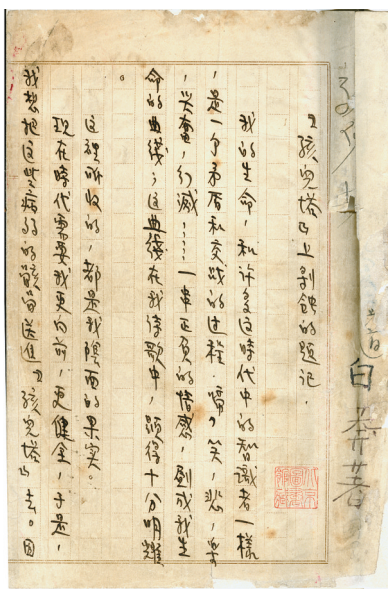 白莽著
『孩兒塔』上剝蝕的题记.
我的生命,和许多这時代中的智識者一樣
,是一个矛盾和交战的过程,啼,笑,悲,樂
,兴奮,幻滅……一串正負的情感,劃成我生
命的曲线;这曲线在我诗歌中,顕得十分明耀
。
这裡所收的,都是我陰面的果实。
现在時代需要我更向前,更健全,于是,
我想把这些病弱的骸骨送進『孩兒塔』去。因